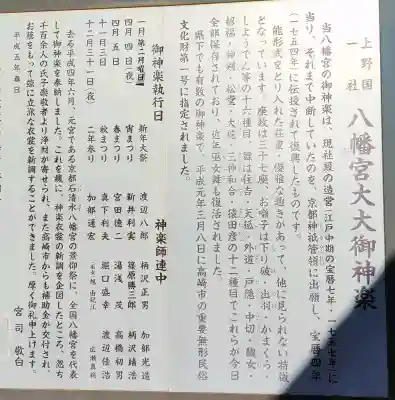 上野国
一社
八幡宮大大御神楽
当八幡宮の御神楽は、現社殿の造営(江戸中期の宝暦七年・一七五七年)に
当り、それまで中断していたのを、京都神祇管領に出願し、宝暦四年
(一七五四年)に伝授されて復興したものです。
能形式をとり入れた荘重・優雅な趣きがあって、他に見られない特徴
となっています。座数は三十七座、お囃子は下り破・出羽・かまくら・
しょうでん等の十六種目、舞は住吉・天狐・外道・戸隠・中切・醜女・
招福・神剣・松堂・大蛇・三神和合・猿田彦の十二種目でこれらが今日
全部保存されており、近年巫女舞も復活されました。
県下でも有数の御神楽で、平成元年三月八日に高崎市の重要無形民俗
文化財第一号に指定されました。
御神楽執行日
一月第二日曜日 新年大祭
四月四日(夜) 宵まつり
四月五日 春まつり
十一月三日 秋まつり
十二月三十一(夜) 二年参り
神楽師連中
渡辺八郎 柄沢正男 加部光遥
新井利実 篠原勝三郎 柄沢靖浩
宮田徳二 湯浅茂 高橋初男
真下利夫 堀口盛幸 渡辺佳浩
加部通宏
広瀬真利
去る平成四年六月、元宮である京都石清水八幡宮の景仰祭に、全国八幡宮を代表
して御神楽を奉納しました。これを機に、神楽衣裳の新調を企図したところ、忽ち
千百余人の氏子崇敬者より浄財が寄せられ、また高崎市からも補助金が交付され、
お陰をもって誠に立派な衣裳を新調することができました。厚く御礼申上げます。
平成五年春日
宮司 敬白